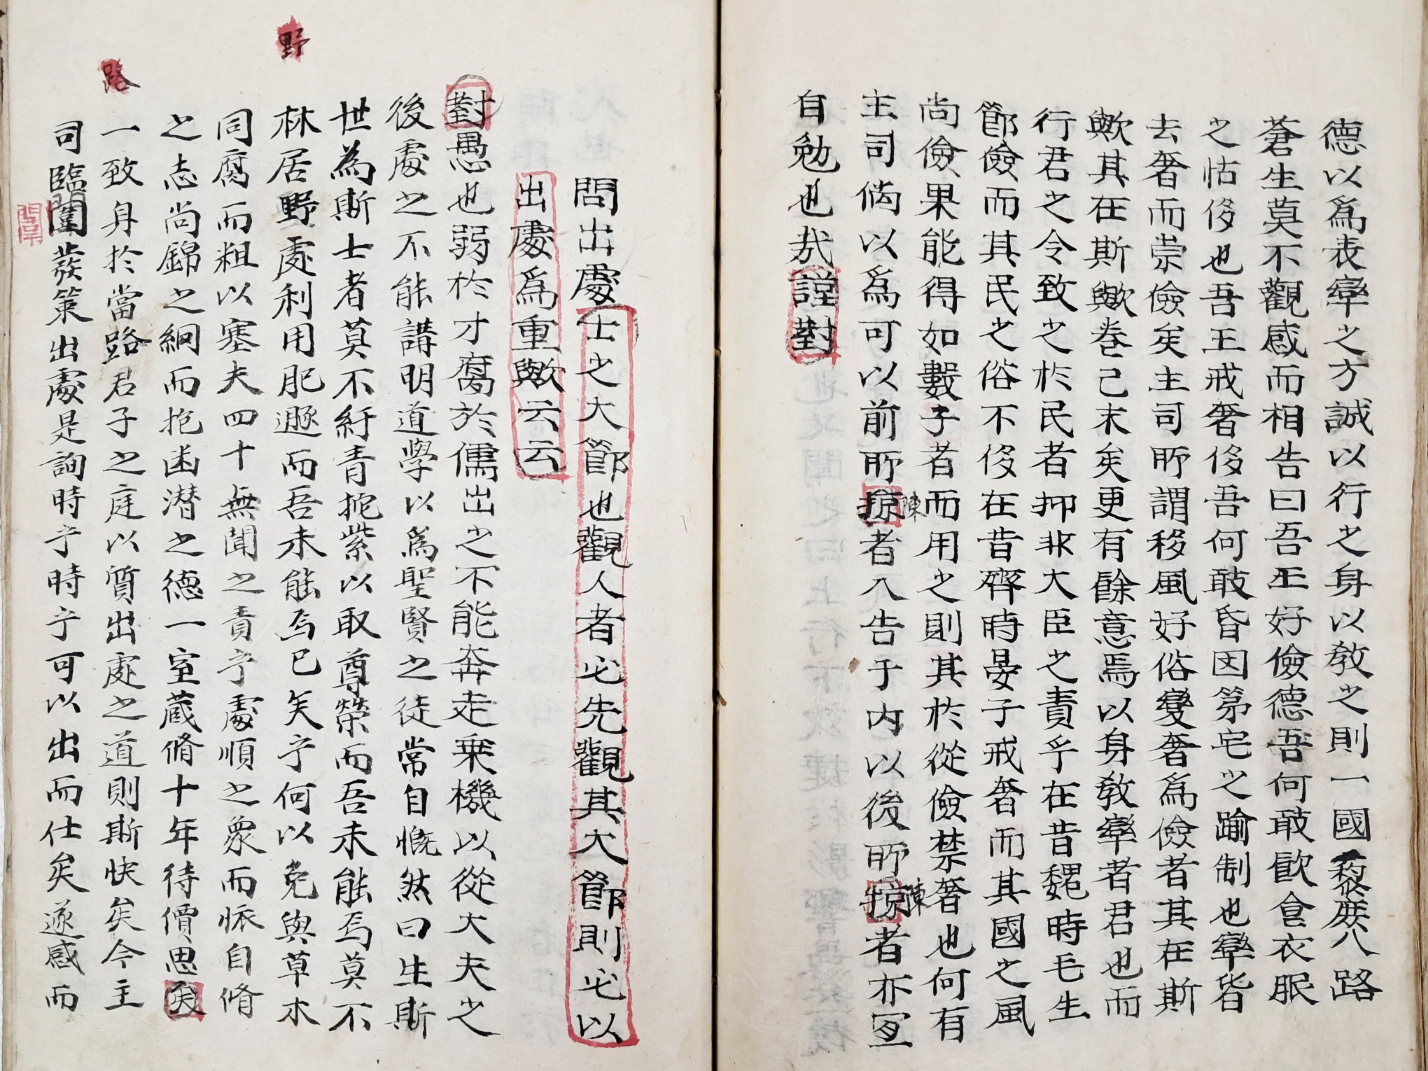 德以爲表率之方誠以行之身以敎之則一國黎庶八路
蒼生莫不觀感而相告曰吾王好儉德吾何敢飮食衣服
之怙侈也吾王戒奢侈吾何敢昏因第宅之踰制也率皆
去奢而崇儉矣主司所謂移風好俗變奢爲儉者其在斯
歟其在斯歟卷己末矣更有餘意焉以身敎率者君也而
行君之令致之於民者抑非大臣之責乎在昔魏時毛生
節儉而其民之俗不侈在昔齊時晏子戒奢而其國之風
尚儉果能得如數子者而用之則其於從儉禁奢也何有
主司倘以爲可以前所掠者入告于內以後所掠者亦宜
陳
陳
自勉也哉謹對
問出處士之大節也觀人者必先觀其大節則必以
出處爲重歟云云
對愚也弱於才腐於儒出之不能奔走乘機以從大夫之
後處之不能講明道學以爲聖賢之徒常自慨然曰生斯
世為斯士者莫不紆青拖紫以取尊榮而吾未能焉莫不
林居野處利用肥遯而吾未能焉已矣乎何以免與草木
同腐而粗以塞夫四十無聞之責乎處順之衆而恢自脩
之志尚錦之絅而抱幽潜之德一室蔵脩十年待價思矣
一致身於當路君子之庭以質出處之道則斯快矣今主
司臨闈發策出處是詢時乎時乎可以出而仕矣遂感而
野
路
闈